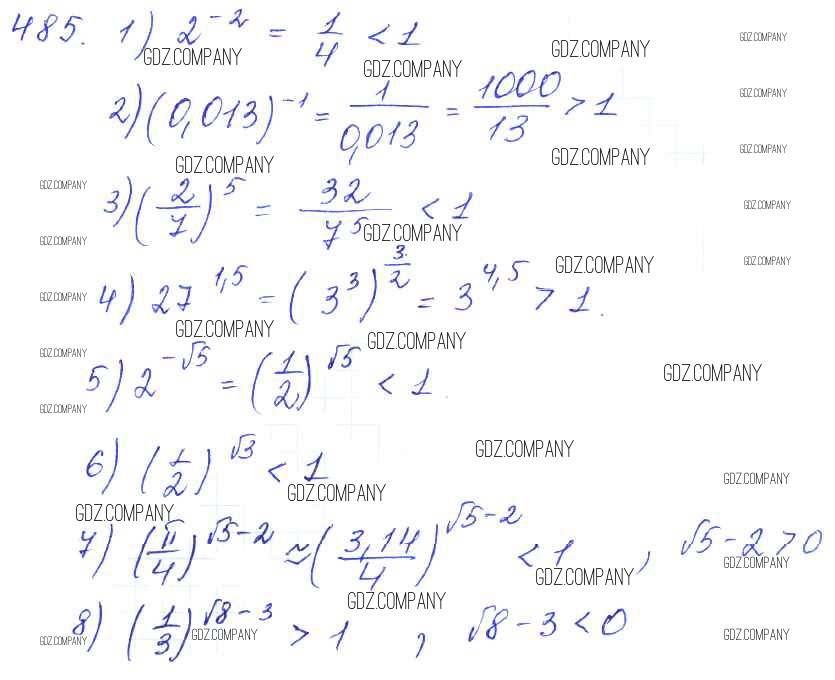 485. 1) 2^{-2} = \frac{1}{4} < 1
GDZ.COMPANY GDZ.COMPANY GDZ.COMPANY GDZ.COMPANY
2) (0,013)^{-1} = \frac{1}{0,013} = \frac{1000}{13} > 1
GDZ.COMPANY
GDZ.COMPANY GDZ.COMPANY GDZ.COMPANY
GDZ.COMPANY
3) (\frac{2}{7})^{5} = \frac{32}{7^{5}} < 1
GDZ.COMPANY GDZ.COMPANY
GDZ.COMPANY GDZ.COMPANY GDZ.COMPANY
4) 27^{1,5} = (3^{3})^{\frac{3}{2}} = 3^{4,5} > 1.
GDZ.COMPANY
GDZ.COMPANY GDZ.COMPANY
GDZ.COMPANY
5) 2^{-√5} = (\frac{1}{2})^{√5} < 1
GDZ.COMPANY
GDZ.COMPANY
6) (\frac{1}{2})^{√3} < 1
GDZ.COMPANY
GDZ.COMPANY GDZ.COMPANY
GDZ.COMPANY
7) (\frac{π}{4})^{√5-2} ≈ (\frac{3,14}{4})^{√5-2} < 1, √5-2 > 0
GDZ.COMPANY GDZ.COMPANY
GDZ.COMPANY
8) (\frac{1}{3})^{√8-3} > 1, √8-3 < 0
GDZ.COMPANY GDZ.COMPANY GDZ.COMPANY